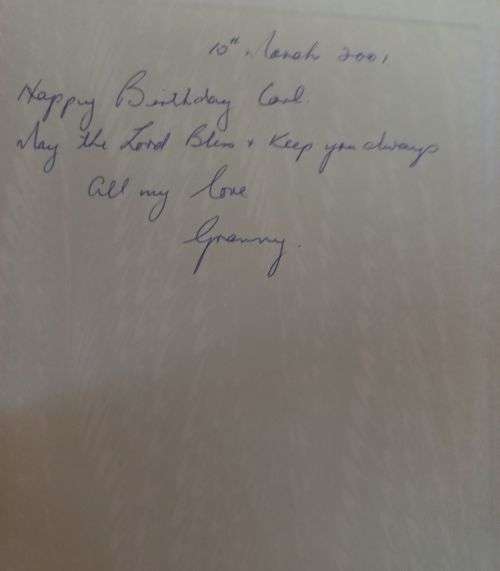 10th March 2001
Happy Birthday Carl.
May the Lord Bless + Keep you always
All my love
Granny.